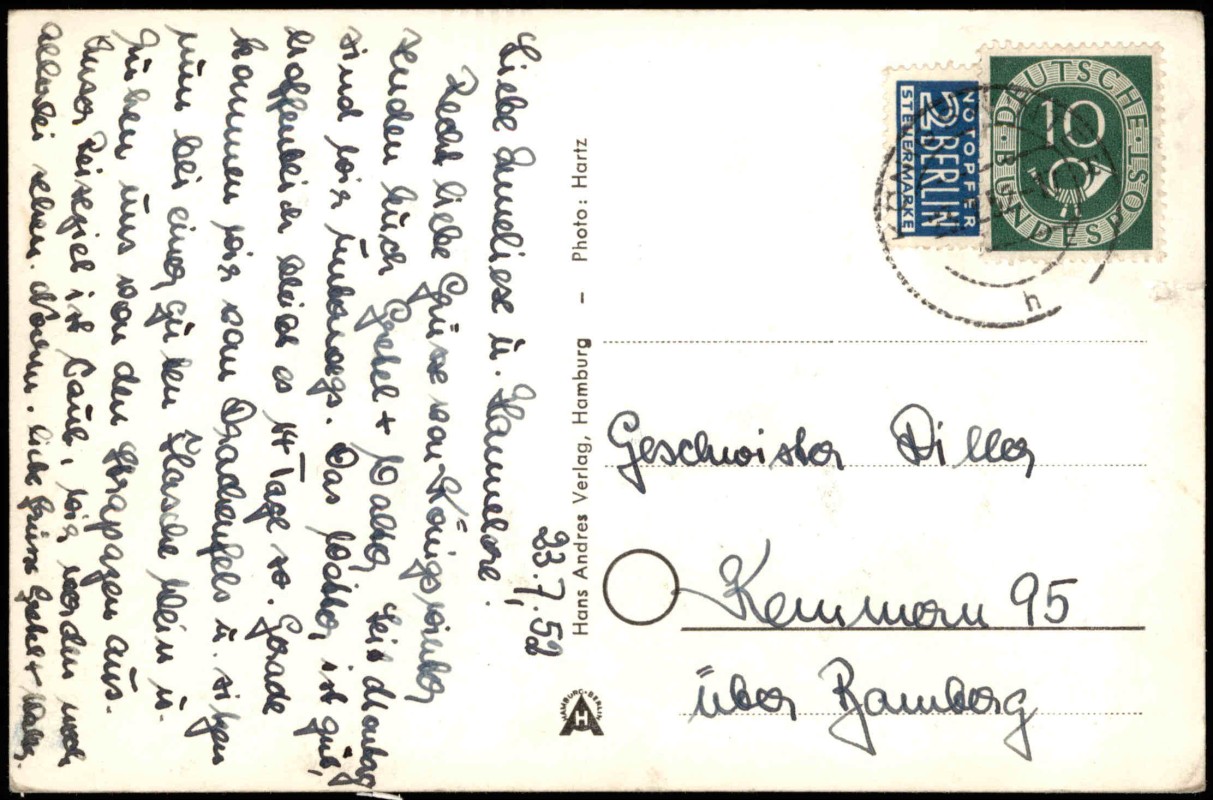 23.7.52
Liebe Anneliese u. Hannelore!
Recht liebe Grüsse von Königswinter
senden Euch Gretel + Walter. Seit Montag
sind wir unterwegs. Das Wetter ist gut,
hoffentlich bleibt es 14 Tage so. Gerade
kommen wir vom Drachenfels u. sitzen
nun bei einer guten Flasche Wein u.
ruhen uns von den Strapazen aus.
Unser Reiseziel ist Caub, wir werden noch
allerlei sehen. Nochm. liebe Grüsse Gretel + Walter.
Hans Andres Verlag, Hamburg – Photo: Hartz
HAMBURG·BERLIN
AH
NOTOPFER
2 BERLIN
STEUERMARKE
DEUTSCHE BUNDESPOST
10
Geschwister Diller
Kemmern 95
über Bamberg